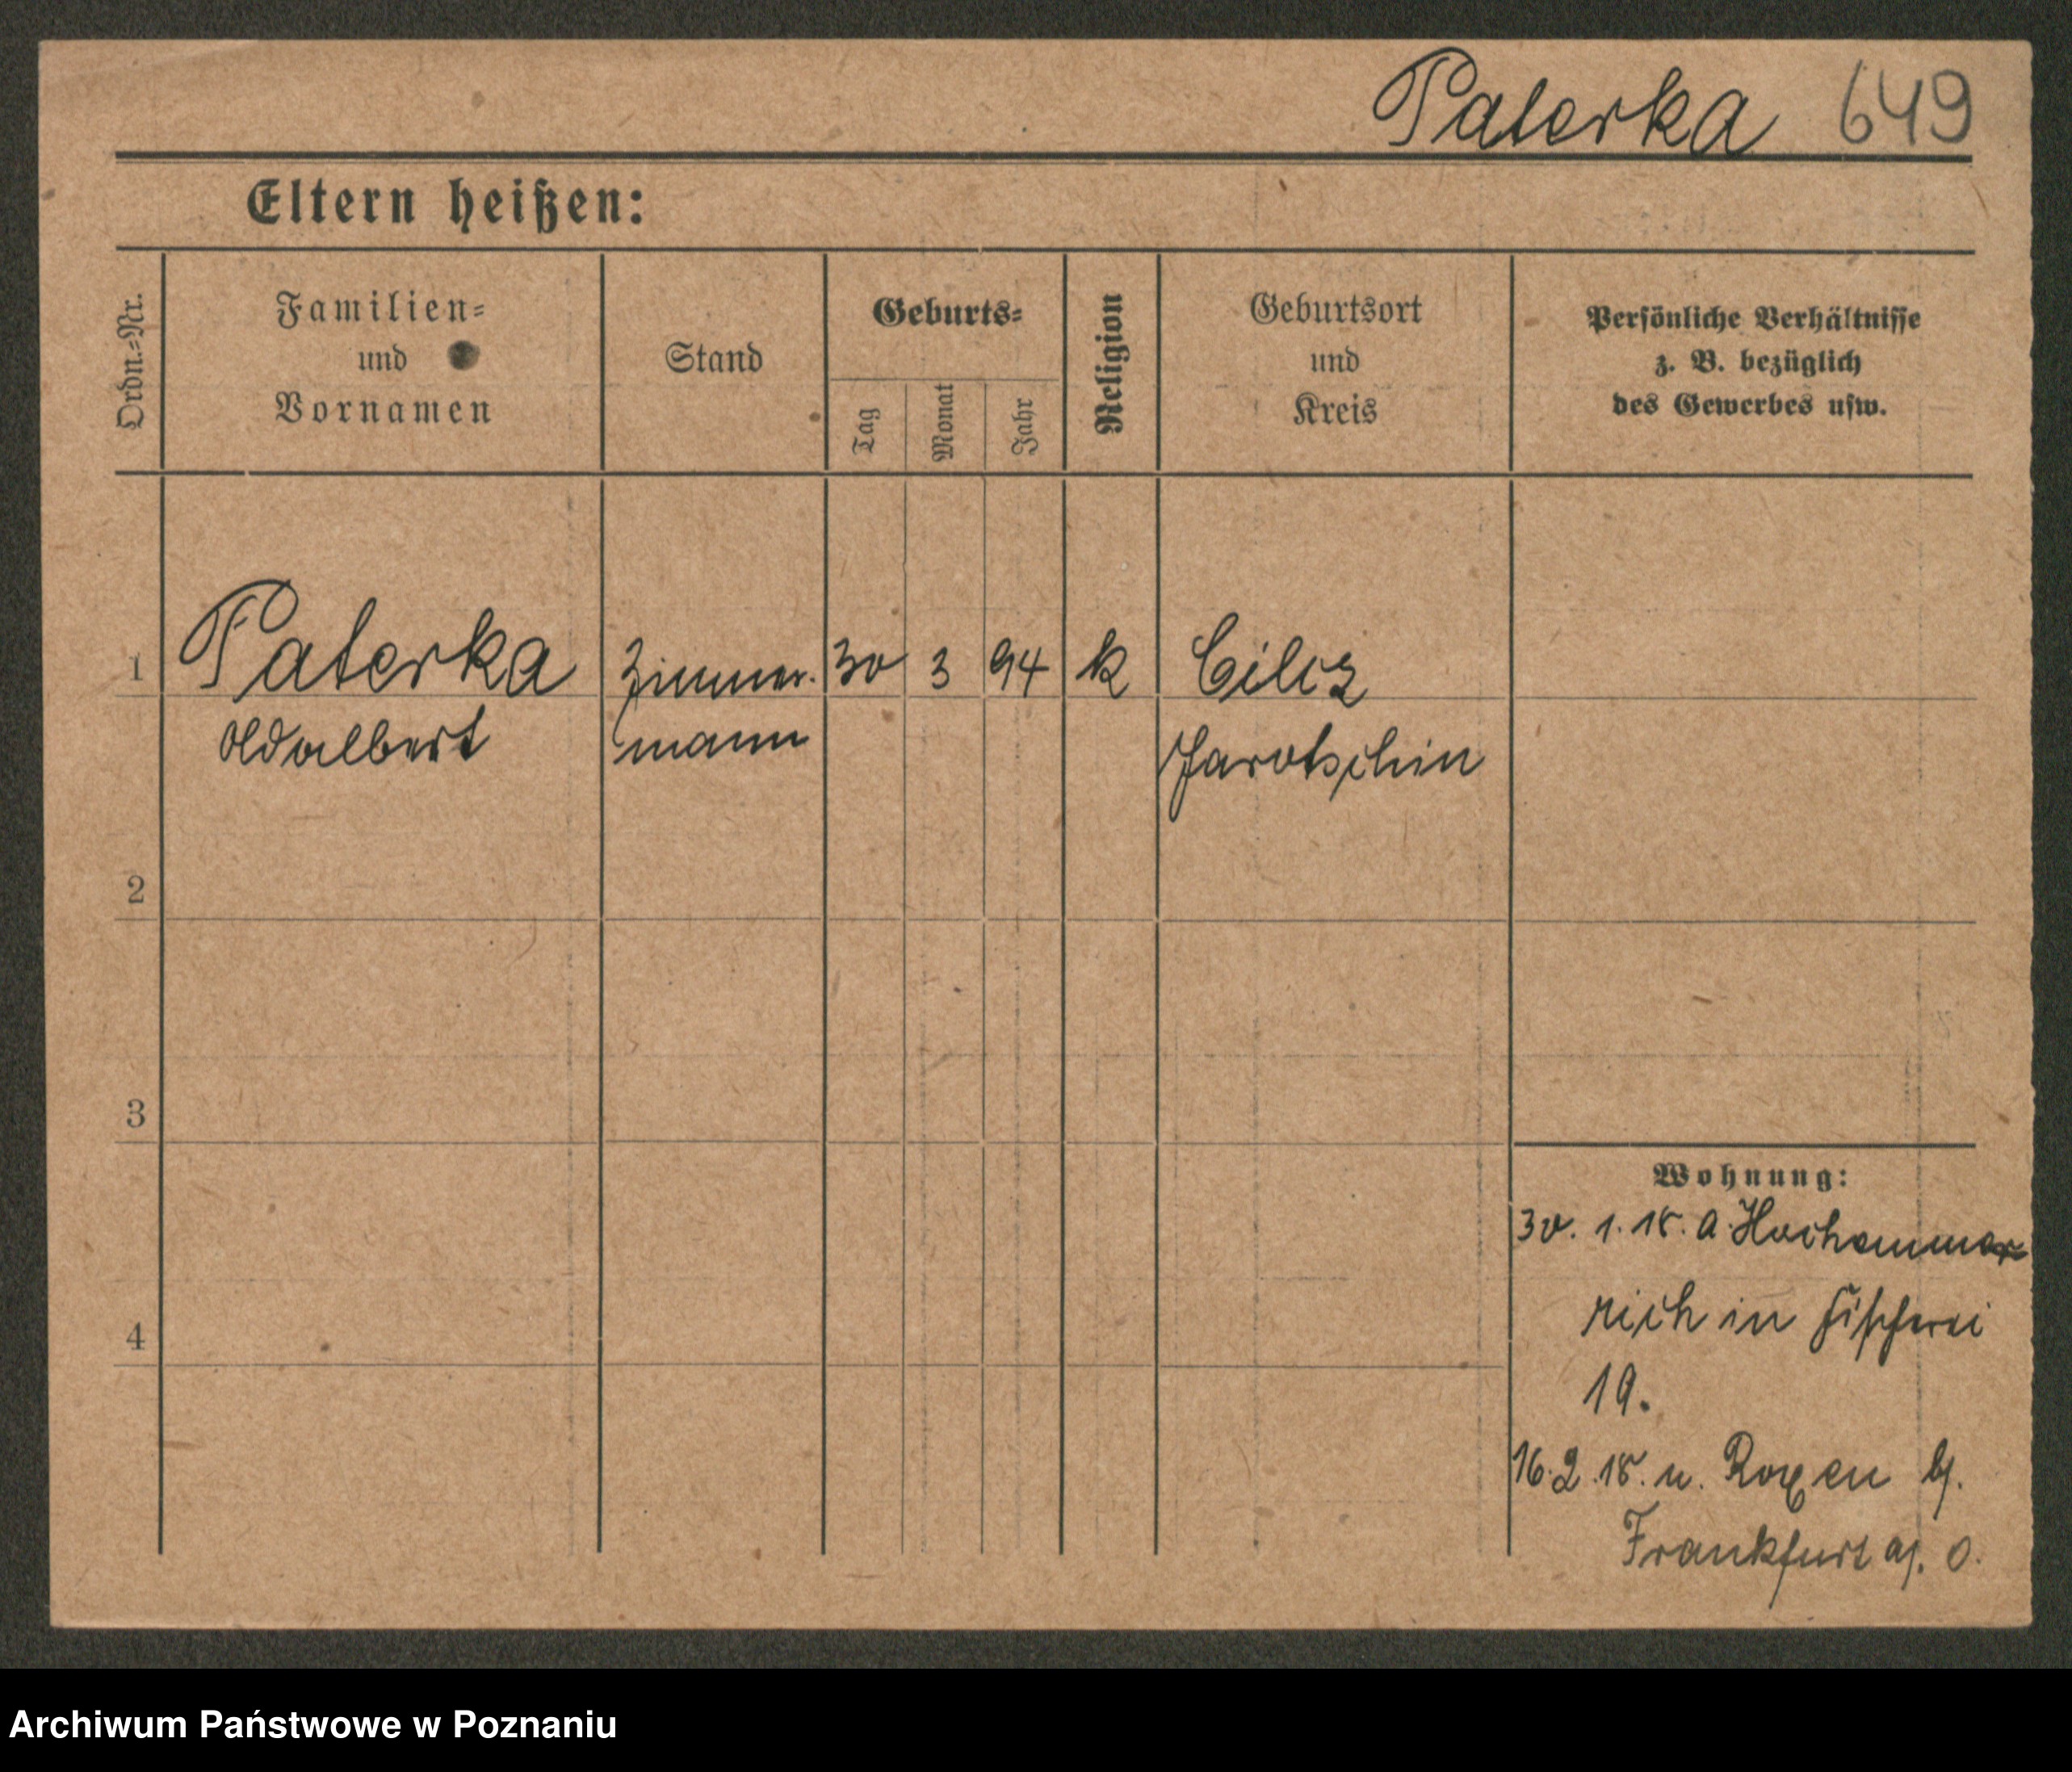 Paterka 649
Eltern heißen:
Ordn.=Nr.
Familien=
und
Vornamen
Stand
Geburts=
Tag
Monat
Jahr
Religion
Geburtsort
und
Kreis
Persönliche Verhältnisse
z. B. bezüglich
des Gewerbes usw.
1 Paterka Zimmer. 30 3 94 k Cilcz
Adalbert mann Jarotschin
2
3
4
Wohnung:
30. 1. 18. a.
rich in Fischerei
19.
16. 2. 18. n. b/.
Frankfurt a/. O.
Archiwum Państwowe w Poznaniu